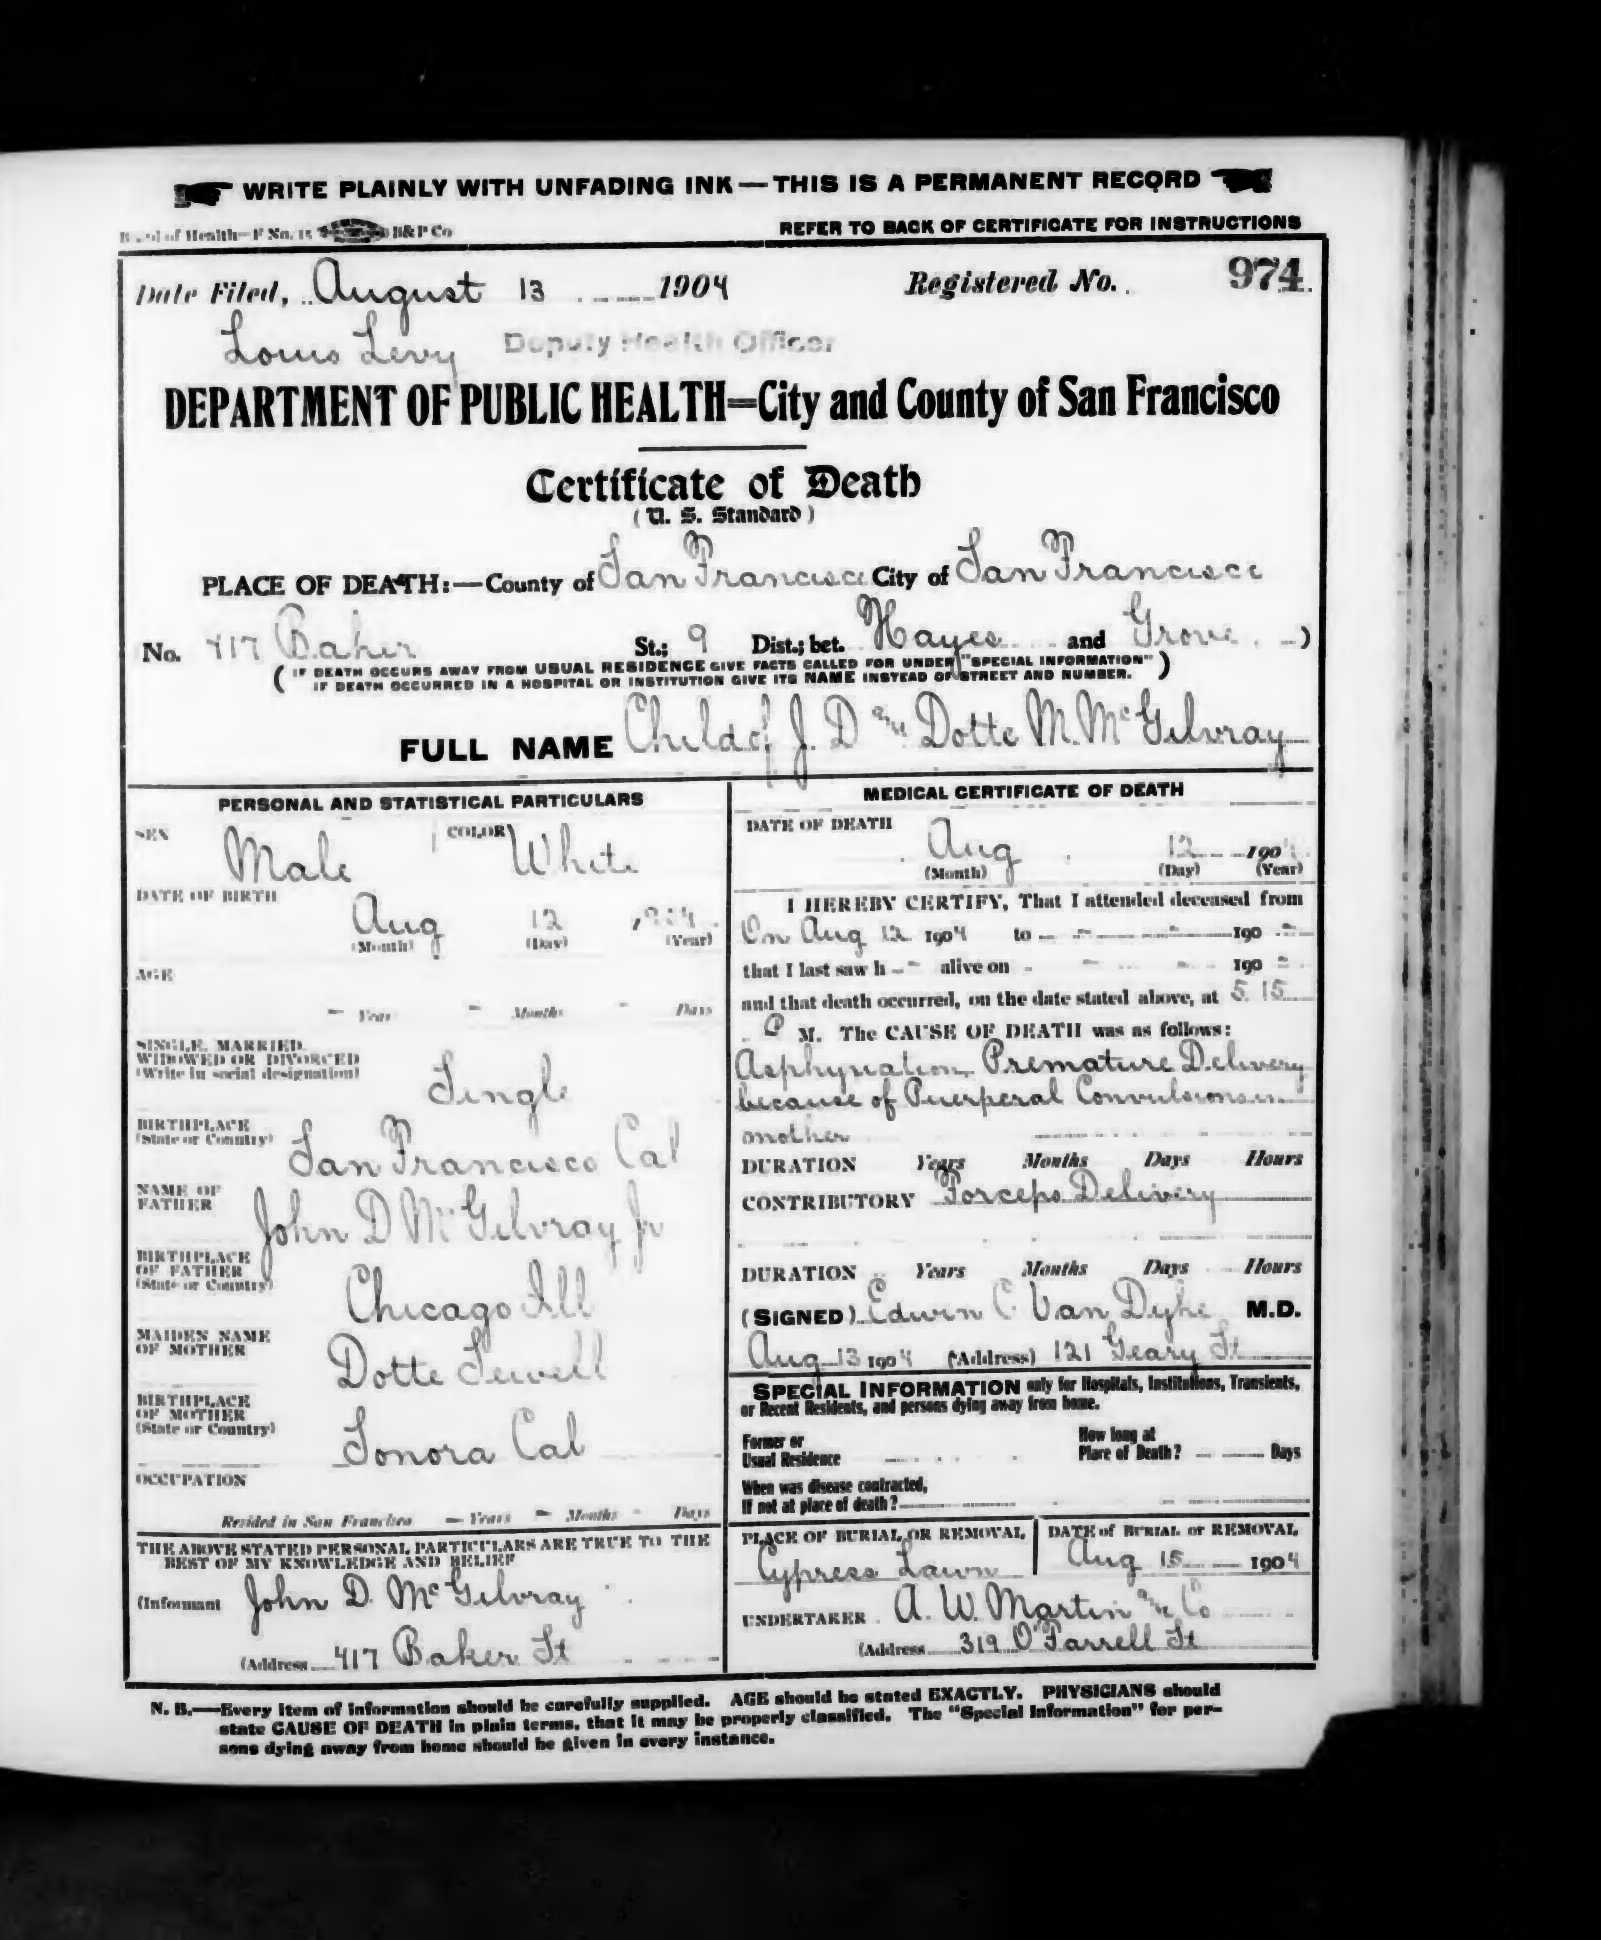 WRITE PLAINLY WITH UNFADING INK — THIS IS A PERMANENT RECORD
Board of Health—F No. 15 B&P Co REFER TO BACK OF CERTIFICATE FOR INSTRUCTIONS
Date Filed, August 13 1904 Registered No. 974
Louis Levy Deputy Health Officer
DEPARTMENT OF PUBLIC HEALTH=City and County of San Francisco
Certificate of Death
(U. S. Standard)
PLACE OF DEATH:—County of San Francisco City of San Francisco
No. 417 Baker St.; 9 Dist.; bet. Hayes and Grove )
( IF DEATH OCCURS AWAY FROM USUAL RESIDENCE GIVE FACTS CALLED FOR UNDER "SPECIAL INFORMATION" )
( IF DEATH OCCURRED IN A HOSPITAL OR INSTITUTION GIVE ITS NAME INSTEAD OF STREET AND NUMBER. )
FULL NAME Child of J. D and Dotte M. McGilvray
PERSONAL AND STATISTICAL PARTICULARS
SEX Male COLOR White
DATE OF BIRTH
Aug 12 1904
(Month) (Day) (Year)
AGE
– Years – Months – Days
SINGLE, MARRIED,
WIDOWED OR DIVORCED
(Write in social designation)
Single
BIRTHPLACE
(State or Country)
San Francisco Cal
NAME OF
FATHER
John D McGilvray Jr
BIRTHPLACE
OF FATHER
(State or Country)
Chicago Ill
MAIDEN NAME
OF MOTHER
Dotte Sewell
BIRTHPLACE
OF MOTHER
(State or Country)
Sonora Cal
OCCUPATION
Resided in San Francisco – Years – Months – Days
THE ABOVE STATED PERSONAL PARTICULARS ARE TRUE TO THE
BEST OF MY KNOWLEDGE AND BELIEF
(Informant John D. McGilvray
(Address 417 Baker St
MEDICAL CERTIFICATE OF DEATH
DATE OF DEATH
Aug 12 1904
(Month) (Day) (Year)
I HEREBY CERTIFY, That I attended deceased from
On Aug 12 1904 to – 190 –
that I last saw h – alive on – 190 –
and that death occurred, on the date stated above, at 5.15
P M. The CAUSE OF DEATH was as follows:
Asphyxiation, Premature Delivery
because of Puerperal Convulsions in
mother
DURATION Years Months Days Hours
CONTRIBUTORY Forceps Delivery
DURATION Years Months Days Hours
(SIGNED) Edwin C. Van Dyke M.D.
Aug 13 1904 (Address) 121 Geary St
SPECIAL INFORMATION only for Hospitals, Institutions, Transients,
or Recent Residents, and persons dying away from home.
Former or
Usual Residence
How long at
Place of Death? Days
When was disease contracted,
If not at place of death?
PLACE OF BURIAL OR REMOVAL
Cypress Lawn
DATE of BURIAL or REMOVAL
Aug 15 1904
UNDERTAKER A. W. Martin and Co
(Address 319 O'Farrell St
N. B.—Every item of information should be carefully supplied. AGE should be stated EXACTLY. PHYSICIANS should
state CAUSE OF DEATH in plain terms, that it may be properly classified. The "Special Information" for per-
sons dying away from home should be given in every instance.